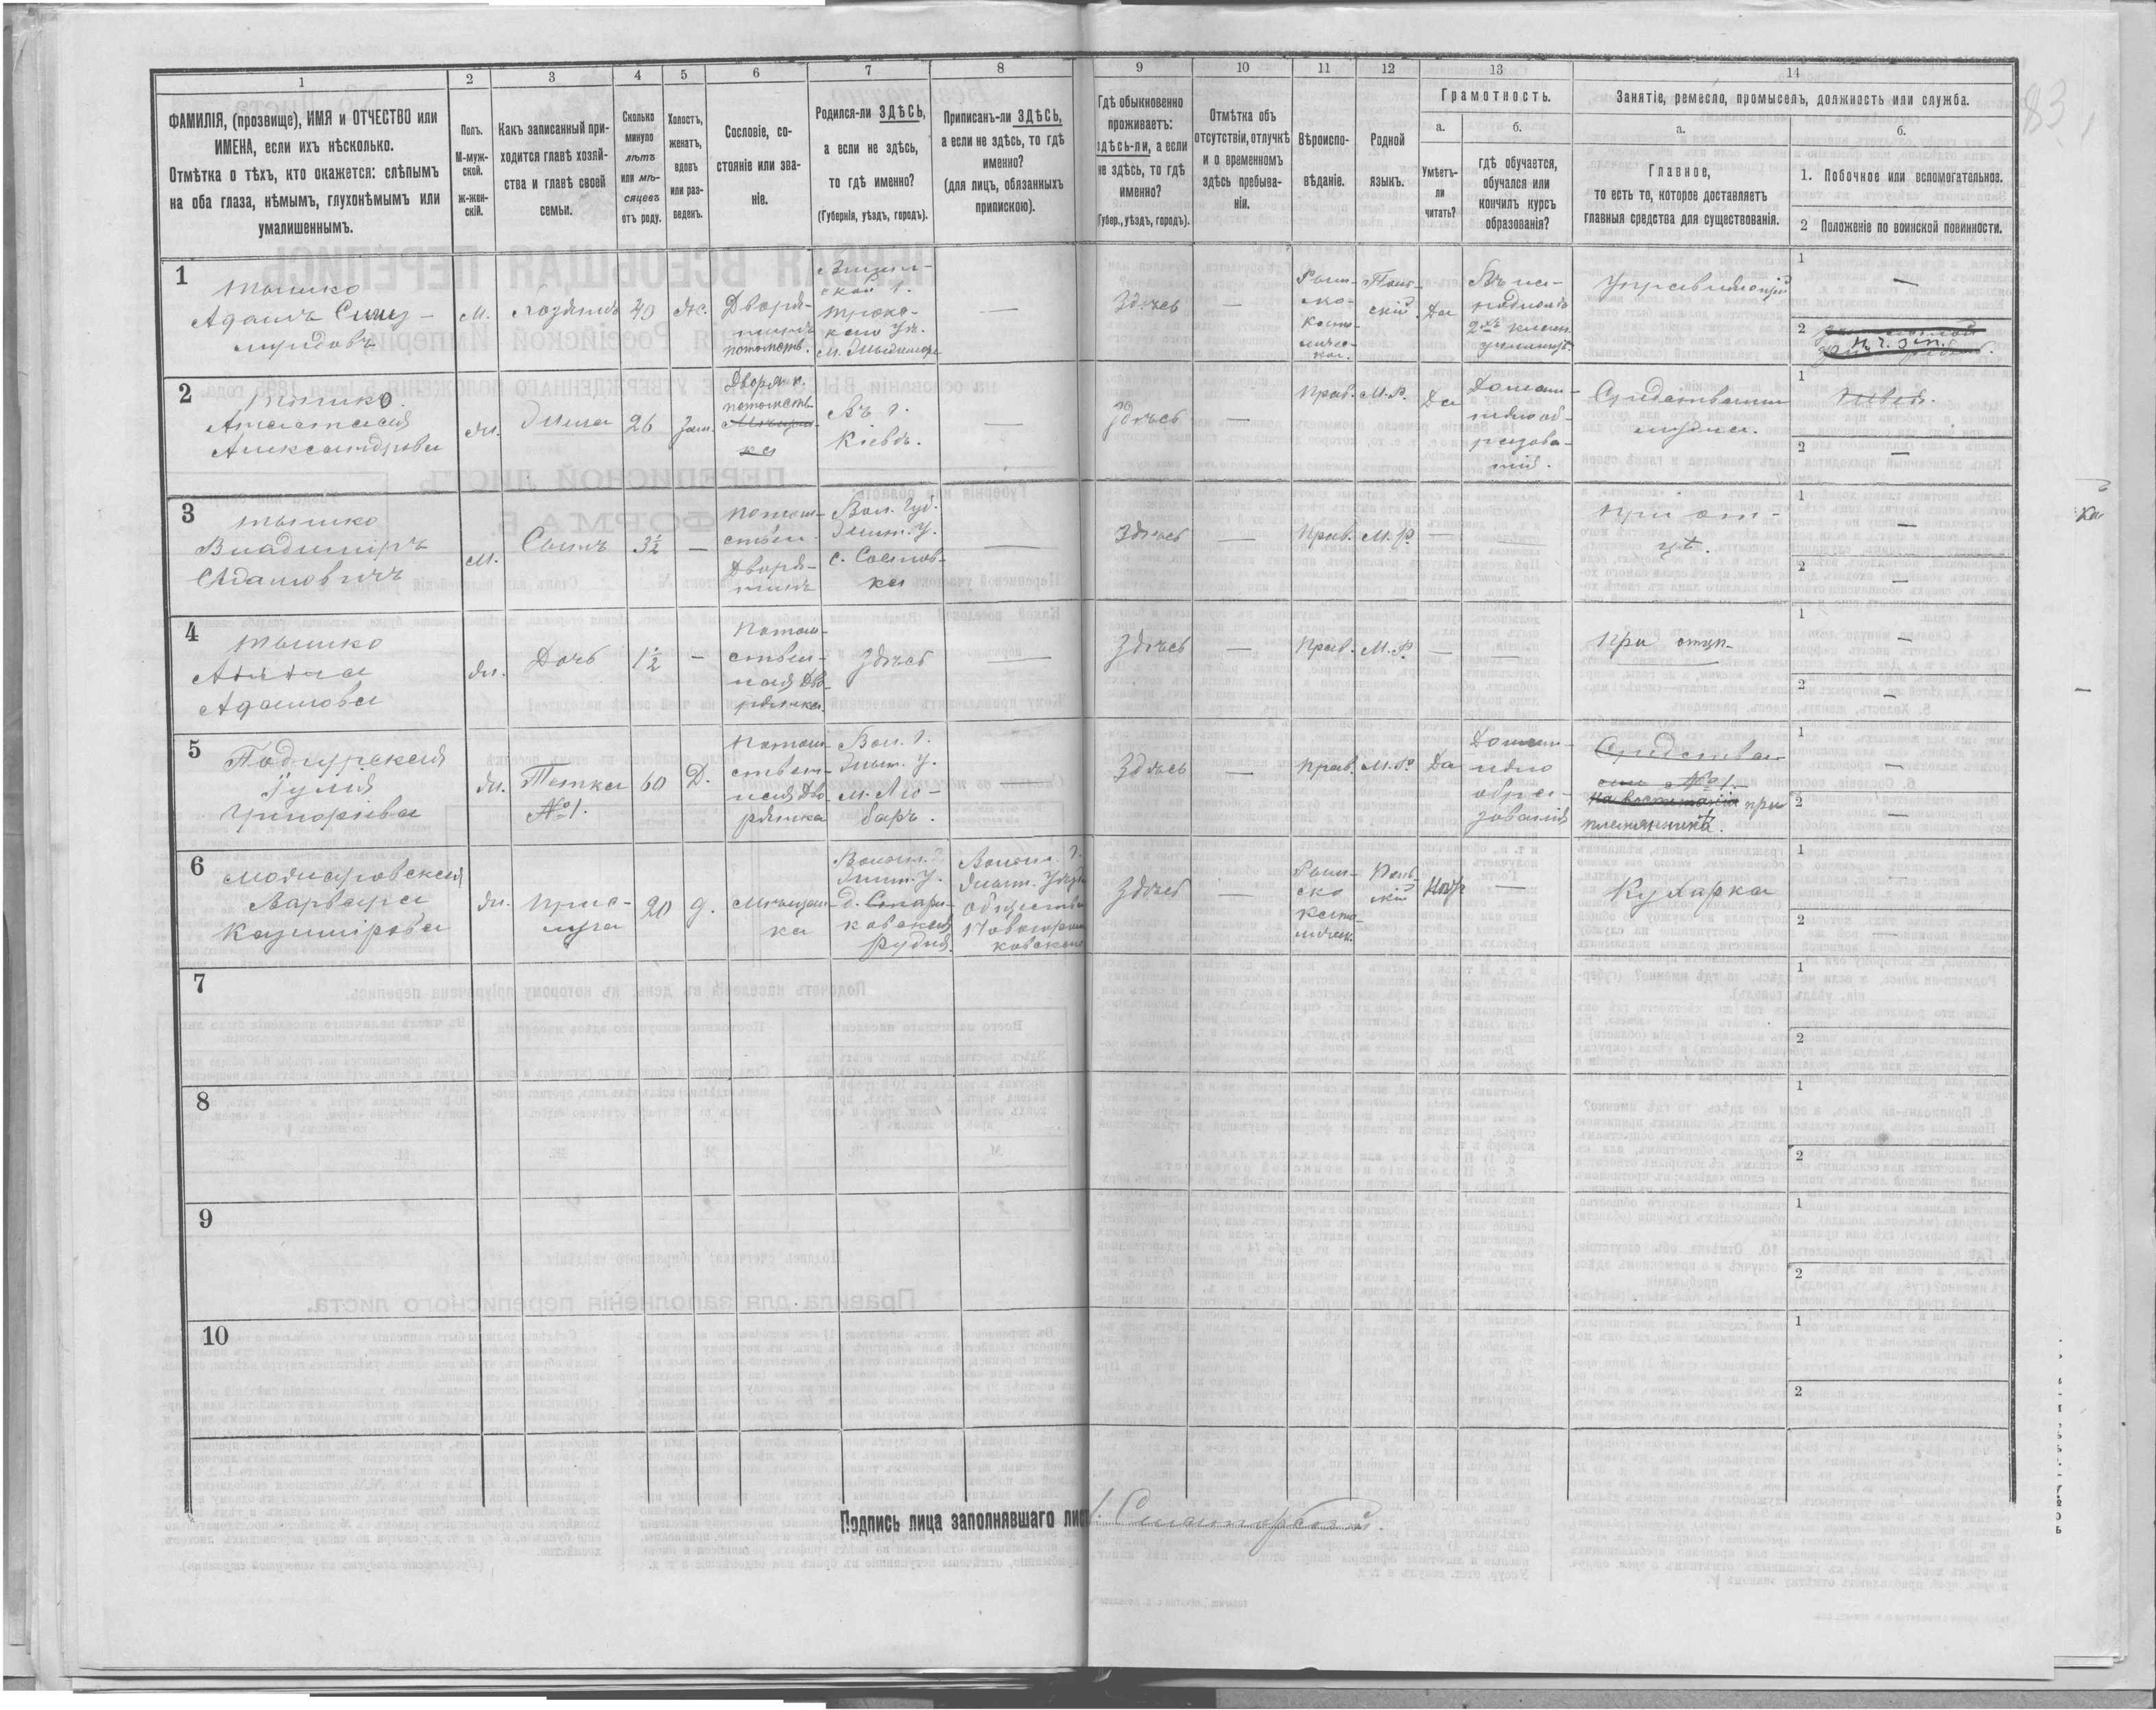 83
1 2 3 4 5 6 7 8 9 10 11 12 13 14
ФАМИЛІЯ, (прозвище), ИМЯ и ОТЧЕСТВО или
ИМЕНА, если ихъ нѣсколько.
Отмѣтка о тѣхъ, кто окажется: слѣпымъ
на оба глаза, нѣмымъ, глухонѣмымъ или
умалишеннымъ.
Полъ.
М-муж-
ской.
ж-жен-
скій.
Какъ записанный при-
ходится главѣ хозяй-
ства и главѣ своей
семьи.
Сколько
минуло
лѣтъ
или мѣ-
сяцевъ
отъ роду.
Холостъ,
женатъ,
вдовъ
или раз-
веденъ.
Сословіе, со-
стояніе или зва-
ніе.
Родился-ли ЗДѢСЬ,
а если не здѣсь,
то гдѣ именно?
(Губернія, уѣздъ, городъ).
Приписанъ-ли ЗДѢСЬ,
а если не здѣсь, то гдѣ
именно?
(для лицъ, обязанныхъ
припискою).
Гдѣ обыкновенно
проживаетъ:
здѣсь-ли, а если
не здѣсь, то гдѣ
именно?
(Губер., уѣздъ, городъ).
Отмѣтка объ
отсутствіи, отлучкѣ
и о временномъ
здѣсь пребыва-
ніи.
Вѣроиспо-
вѣданіе.
Родной
языкъ.
Грамотность.
а.
Умѣетъ-
ли
читать?
б.
гдѣ обучается,
обучался или
кончилъ курсъ
образованія?
Занятіе, ремесло, промыселъ, должность или служба.
а.
Главное,
то есть то, которое доставляетъ
главныя средства для существованія.
б.
1. Побочное или вспомогательное.
2 Положеніе по воинской повинности.
1
Тышко
Адамъ
мундовъ
М.
Хозяинъ
40
Ж.
Дворя-
нинъ
потомств.
ской г.
Троко-
каго уѣ.
—
Здѣсь
—
Рим-
ско-
като-
личес-
кое.
Поль-
скій
Да
Въ
2хъ класн.
училищѣ.
Управляющій
1
—
2
2
Тышко
Анастасія
Александрова
Ж.
Жена
26
Зам.
Дворян.
потомств.
Мѣщан-
ка
Въ г.
Кіевѣ.
—
Здѣсь
—
Прав.
М.Р.
Да
Домаш-
няго об-
разова-
нія.
Средствами
мужа.
1
Швея.
2
—
3
Тышко
Владиміръ
Адамовичъ
М.
Сынъ
3½
—
Потом-
ствен.
Дворя-
нинъ
Вол. Губ.
Жит. У.
с. Соснов-
ка
—
Здѣсь
—
Прав.
М.Р.
—
—
При от-
цѣ.
1
—
2
—
4
Тышко
Адамова
Ж.
Дочь
1½
—
Потом-
ствен-
ная Дво-
рянка.
Здѣсь
—
Здѣсь
—
Прав.
М.Р.
—
—
При отц.
1
—
2
—
5
Подгурская
Юлія
Григорьева
Ж.
Тетка
№1.
60
Д.
Потом-
ствен-
ная Дво-
рянка
Вол. г.
Жит. У.
м. Лю-
баръ.
—
Здѣсь
—
Прав.
М.Р.
Да
Домаш-
няго
обра-
зованія
Средства-
ми №1.
при
племянникѣ.
1
—
2
—
6
Варвара
Казимірова
Ж.
Прис-
луга
20
Д.
Мѣщан-
ка
Волын. г.
Жит. У.
д.
ковская
Рудня.
Волын. г.
Жит. Уѣзда
Общества
Здѣсь
—
Рим-
ско
като-
личес.
Поль-
скій
Нѣтъ
—
Кухарка
1
—
2
—
7
1
2
8
1
2
9
1
2
10
1
2
Подпись лица заполнявшаго лис